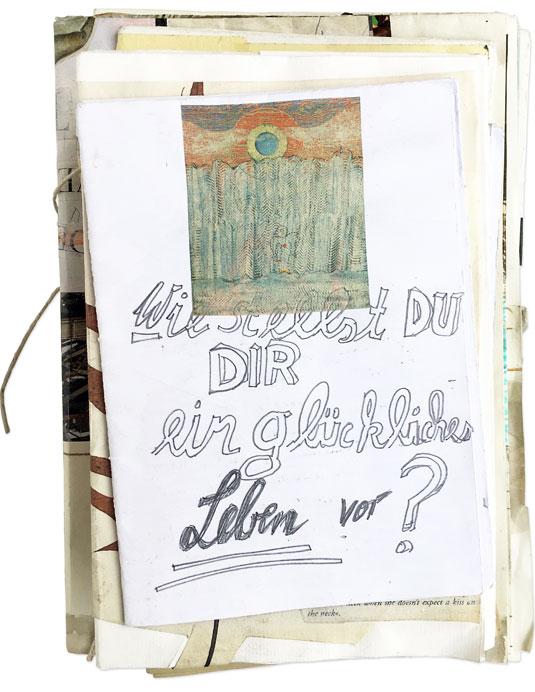 Wie stellst DU
DIR
ein glückliches
Leben vor?
when she doesn't expect a kiss on
the necke.